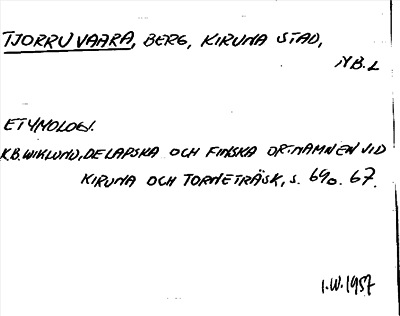 TJORRUVAARA, BERG, KIRUNA STAD,
NB.L
ETYMOLOGI.
K.B.WIKLUND, DE LAPSKA OCH FINSKA ORTNAMNEN VID
KIRUNA OCH TORNETRÄSK, S. 69o. 67.
I.W.1957